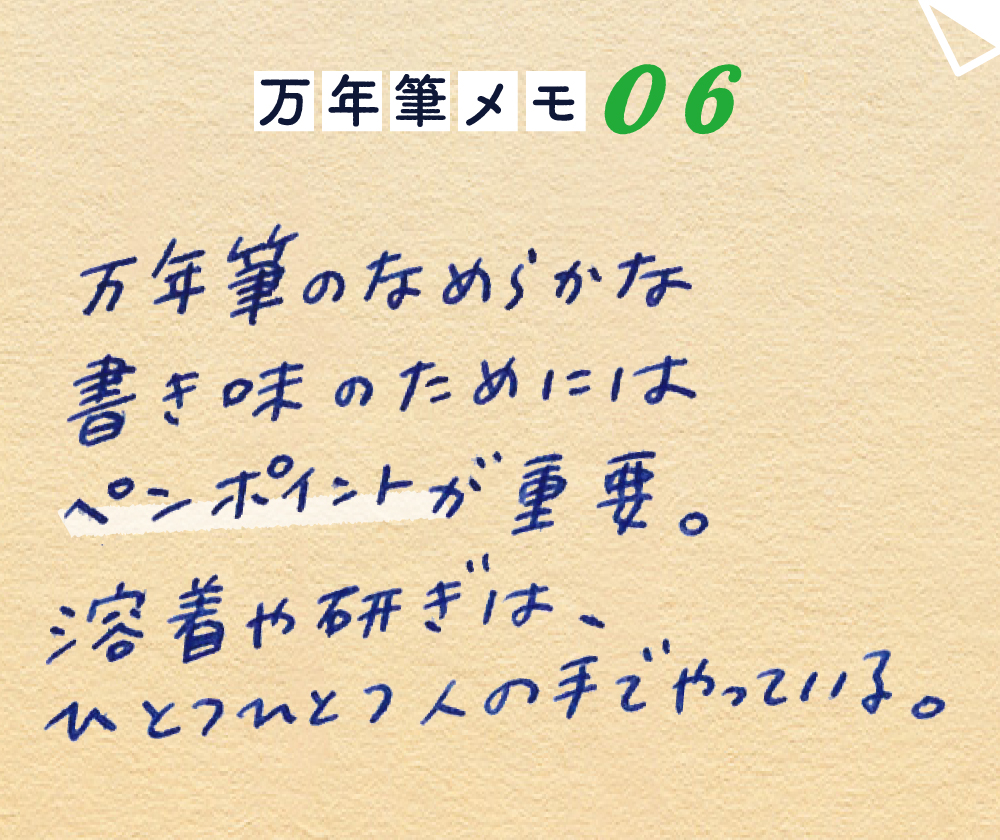 万年筆メモ06
万年筆のなめらかな
書き味のためには
ペンポイントが重要。
溶着や研ぎは、
ひとつひとつ人の手でやっている。